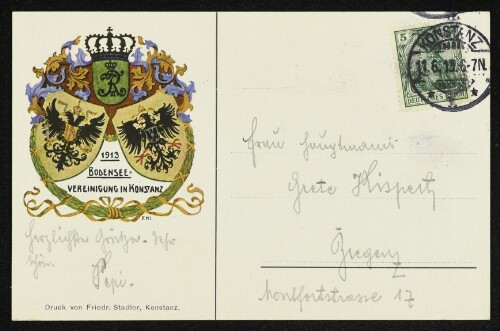 1913
BODENSEE-
VEREINIGUNG IN KONSTANZ
Herzlichste Grüße. Sehr
schön.
Pepi.
Druck von Friedr. Stadler, Konstanz.
5
DEUTSCHES REICH
KONSTANZ
11.6.13. 6-7N.
Frau Hauptmanns
Grete
Bregenz
Montfortstrasse 17